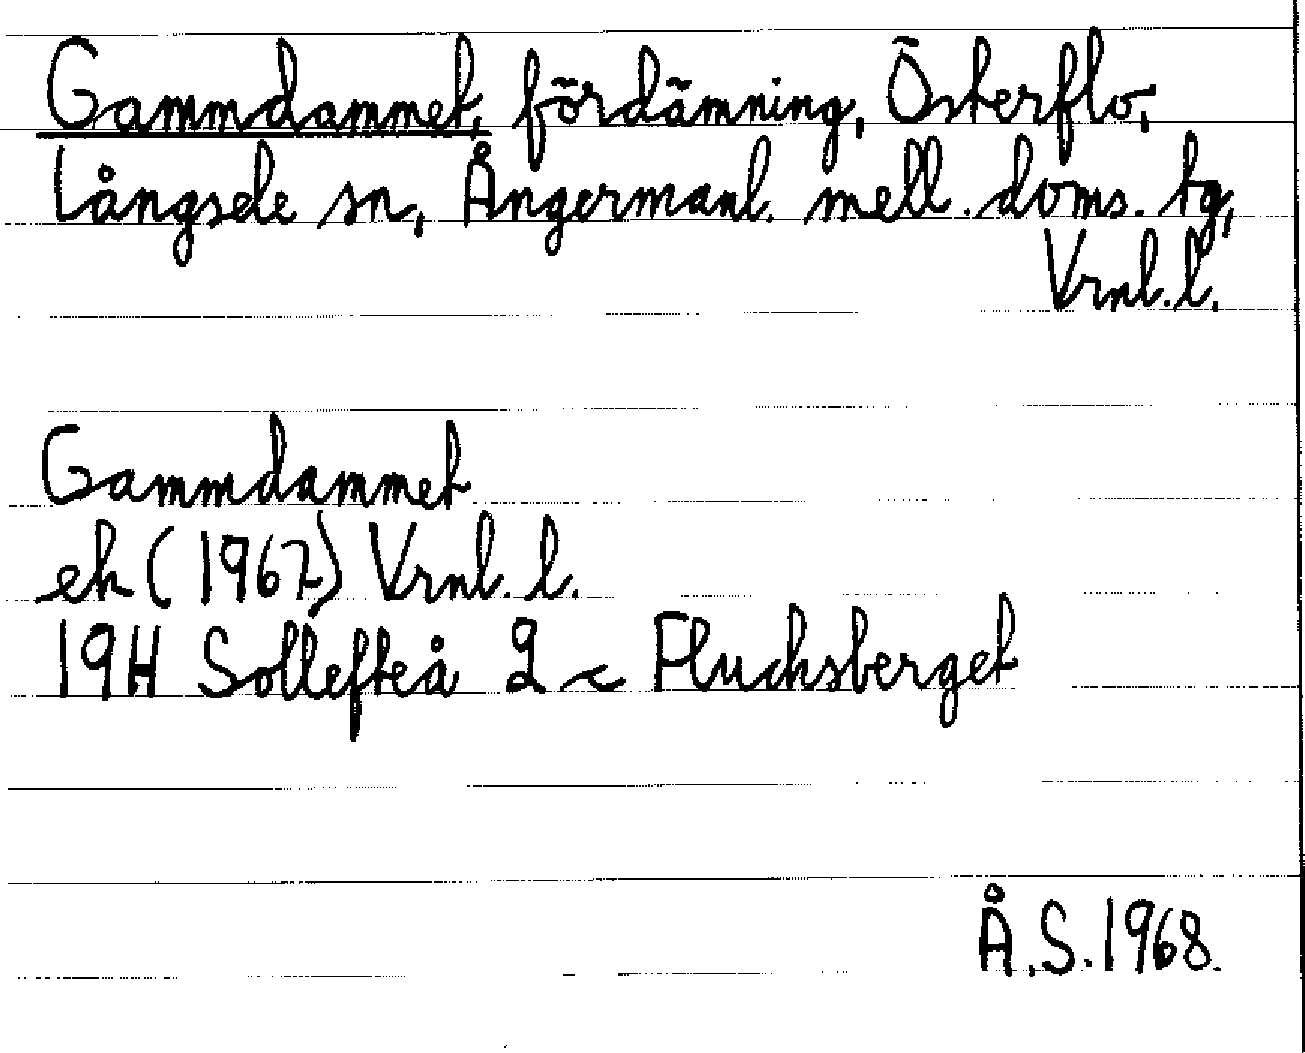 Gammdammet, fördämning, Österflo,
Långsele sn, Ångermanl. mell. doms. tg,
Vrnl. l.
Gammdammet
ek (1967) Vrnl. l.
19H Sollefteå 2 c Flucksberget
Å.S. 1968.